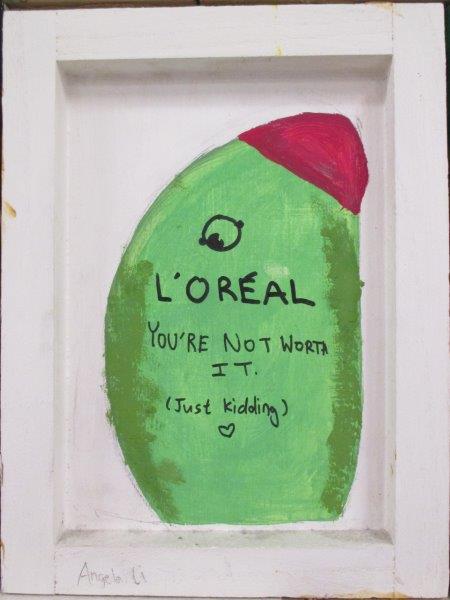 L'ORÉAL
YOU'RE NOT WORTH
IT.
(Just kidding)
Angela Li